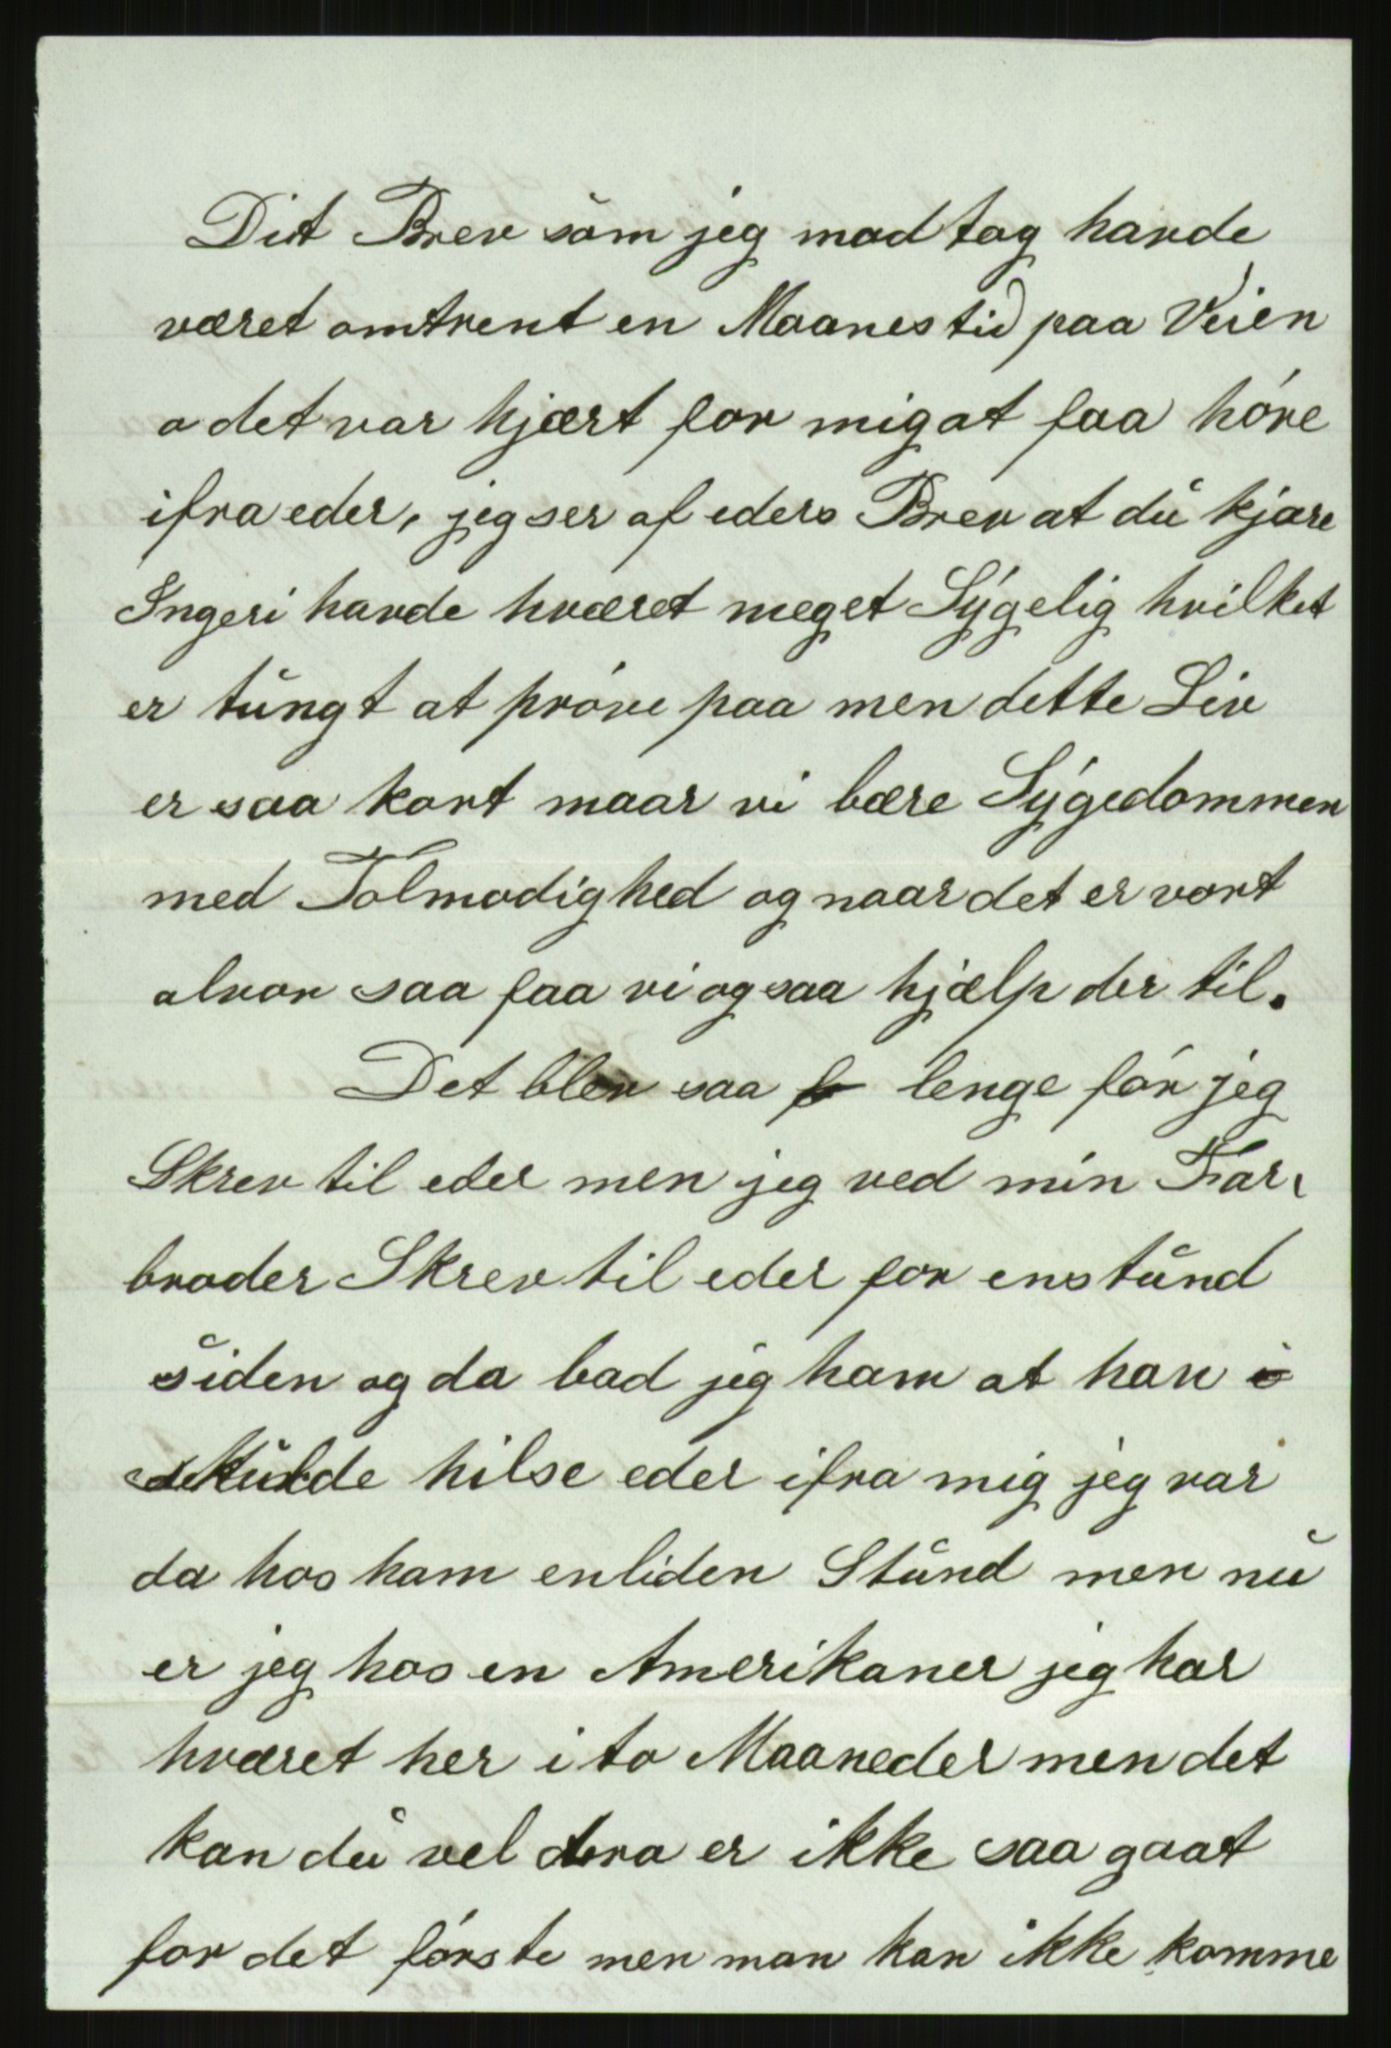 Dit Brev som jeg modtog havde
været omtrent en Maanestid paa Veien
o det var kjært for mig at faa høre
ifra eder, jeg ser af eders Brev at du kjære
Ingeri havde hværet meget Sygelig hvilket
er tungt at prøve paa men dette Liv
er saa kort maar vi bære Sygedommen
med Tolmodighed og naar det er vort
alvor saa faa vi ogsaa hjælp der til.
Det blev saa lenge før jeg
Skrev til eder men jeg ved min Far,
broder Skrev til eder for en stund
siden og da bad jeg ham at han
skulde hilse eder ifra mig jeg var
da hos ham en liden Stund men nu
er jeg hos en Amerikaner jeg har
hværet her i to Maaneder men det
kan du vel tro er ikke saa gaat
for det første men man kan ikke komme